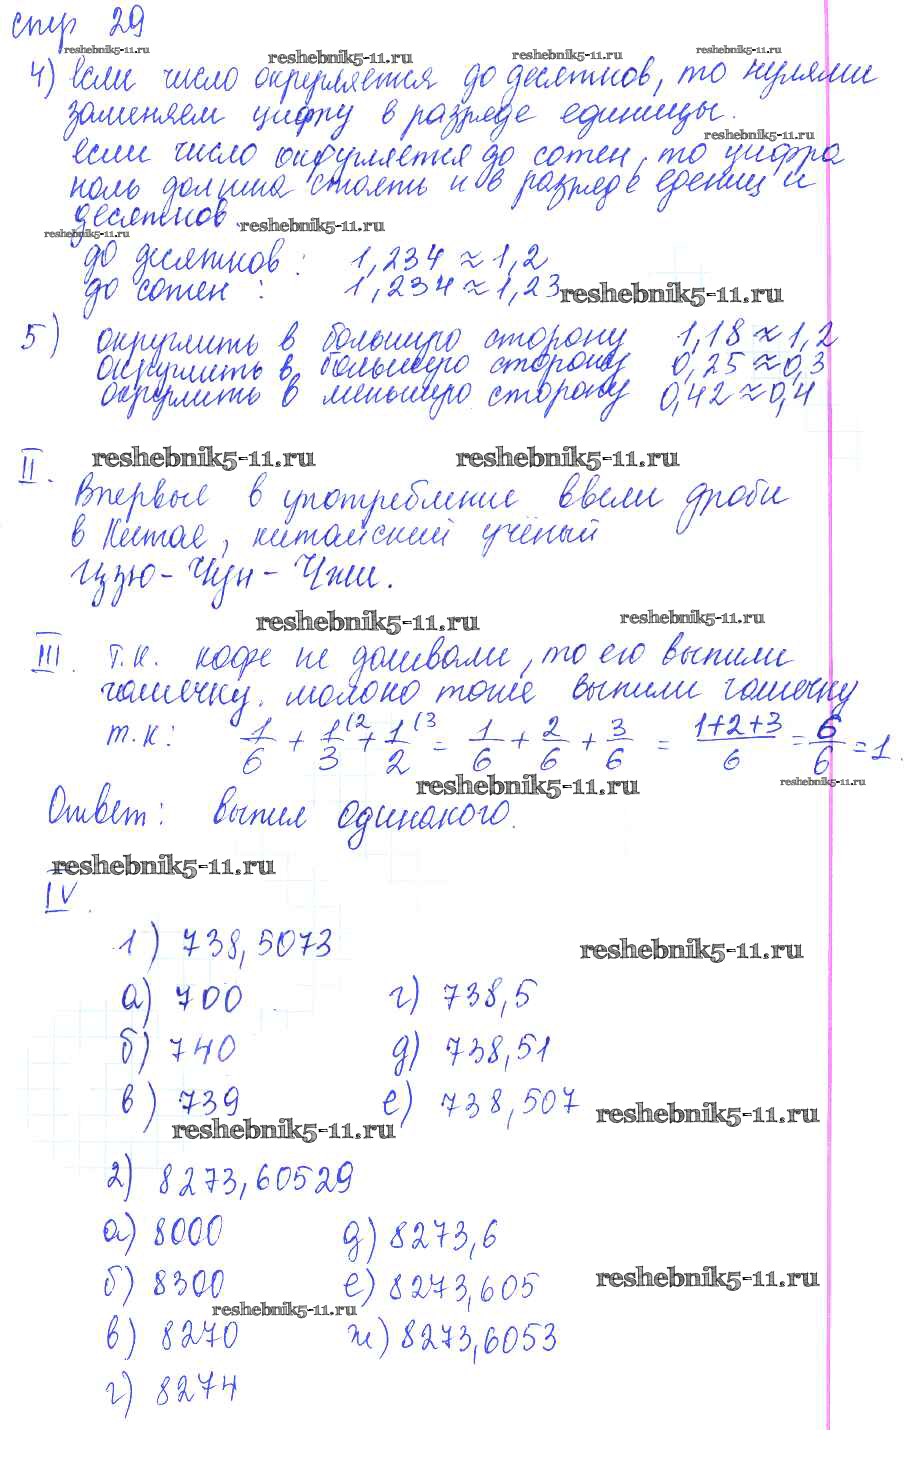 стр 29
reshebnik5-11.ru reshebnik5-11.ru reshebnik5-11.ru reshebnik5-11.ru
4) если число округляется до десятков, то нулями
заменяем цифру в разряде единицы.
reshebnik5-11.ru
если число округляется до сотен, то цифра
ноль должна стоять и в разряде едениц и
десятков.
reshebnik5-11.ru reshebnik5-11.ru
до десятков: 1,234 ≈ 1,2
до сотен: 1,234 ≈ 1,23
reshebnik5-11.ru
5) округлить в большую сторону 1,18 ≈ 1,2
округлить в большую сторону 0,25 ≈ 0,3
округлить в меньшую сторону 0,42 ≈ 0,4
reshebnik5-11.ru reshebnik5-11.ru
II.
Впервые в употребление ввели дроби
в Китае, китайский учёный
Цззю-Чун-Чжи.
reshebnik5-11.ru reshebnik5-11.ru
III. т.к. кофе не доливали, то его выпили
чашечку. молоко тоже выпили чашечку
т.к: 1/6 + 1/3 (2 + 1/2 (3 = 1/6 + 2/6 + 3/6 = 1+2+3/6 = 6/6 = 1.
reshebnik5-11.ru reshebnik5-11.ru
Ответ: выпил одинакого.
reshebnik5-11.ru
IV.
1) 738,5073
reshebnik5-11.ru
а) 700 г) 738,5
б) 740 д) 738,51
в) 739 е) 738,507
reshebnik5-11.ru reshebnik5-11.ru
2) 8273,60529
а) 8000 д) 8273,6
б) 8300 е) 8273,605
reshebnik5-11.ru
reshebnik5-11.ru
в) 8270 ж) 8273,6053
г) 8274